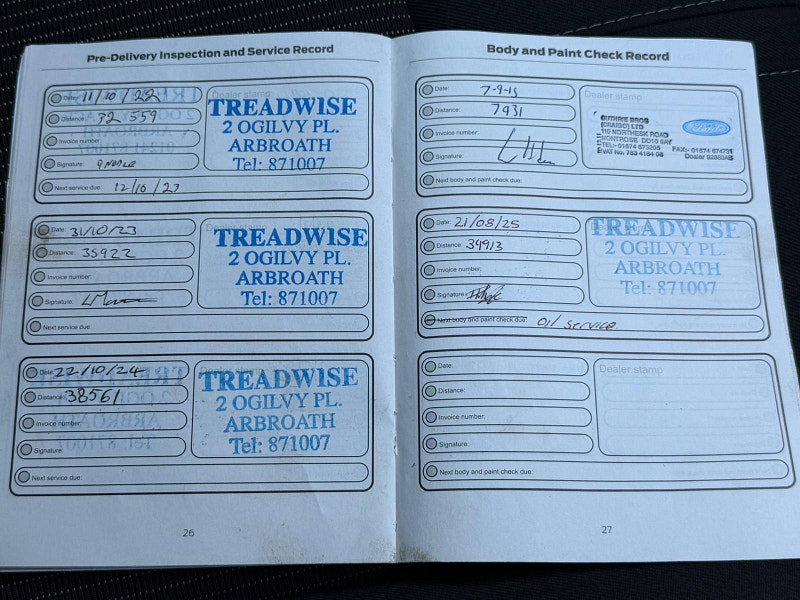 Pre-Delivery Inspection and Service Record
Date: 11/10/22
Distance: 32 559
Invoice number:
Signature:
Next service due: 12/10/23
Dealer stamp
TREADWISE
2 OGILVY PL.
ARBROATH
Tel: 871007
Date: 31/10/23
Distance: 35922
Invoice number:
Signature:
Next service due:
Dealer stamp
TREADWISE
2 OGILVY PL.
ARBROATH
Tel: 871007
Date: 22/10/24
Distance: 38561
Invoice number:
Signature:
Next service due:
Dealer stamp
TREADWISE
2 OGILVY PL.
ARBROATH
Tel: 871007
26
Body and Paint Check Record
Date: 7-9-15
Distance: 7931
Invoice number:
Signature:
Next body and paint check due:
Dealer stamp
GUTHRIE BROS
(CRAIGO) LTD
110 NORTHESK ROAD
MONTROSE DD10
TEL:- 01674 673205 FAX:- 01674 674731
VAT No. 753 4184 08 Dealer
Ford
Date: 21/08/25
Distance: 39913
Invoice number:
Signature:
Next body and paint check due: oil service
TREADWISE
2 OGILVY PL.
ARBROATH
Tel: 871007
Date:
Distance:
Invoice number:
Signature:
Next body and paint check due:
Dealer stamp
27